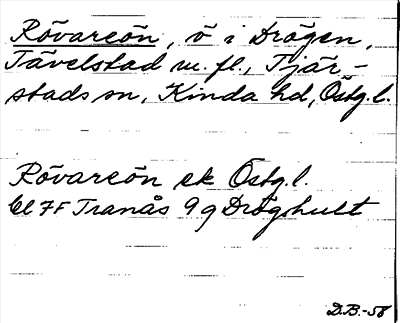 Rövareön, ö i Drögen,
Tävelstad m. fl., Tjär-
stads sn, Kinda hd, Östg.l.
Rövareön ek Östg.l.
Bl 7F Tranås 9 g Drögshult
D.B.-58